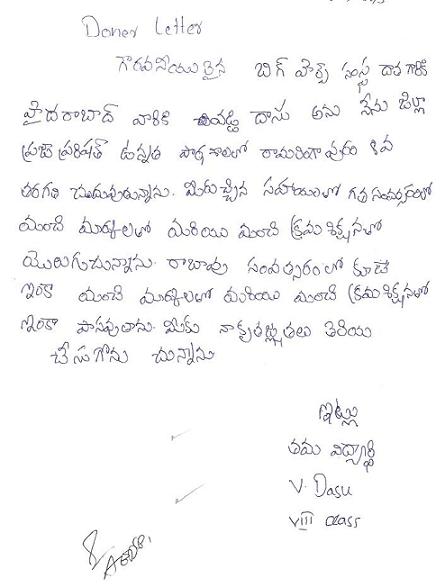 Doner Letter
గౌరవనీయులైన బిగ్ హెల్ప్ సంస్థ దాత గారికి
హైదరాబాద్ వారికి దాసు అను నేను జిల్లా
ప్రజా పరిషత్ ఉన్నత పాఠశాలలో రామలింగా పురం 8వ
తరగతి చదువుతున్నాను. మీరుచ్చిన సహాయంతో గత సంవత్సరంలో
మంచి మార్కులతో మరియు మంచి క్రమశిక్షణతో
యెదుగుచున్నాను. రాబోవు సంవత్సరంలో కూడా
ఇంకా మంచి మార్కులతో మరియు మంచి క్రమశిక్షణతో
ఇంకా పాసవుతాను. మీకు నా కృతజ్ఞతలు తెలియ
చేసుకొను చున్నాను
ఇట్లు
తమ విద్యార్థి
V. Dasu
VIII class